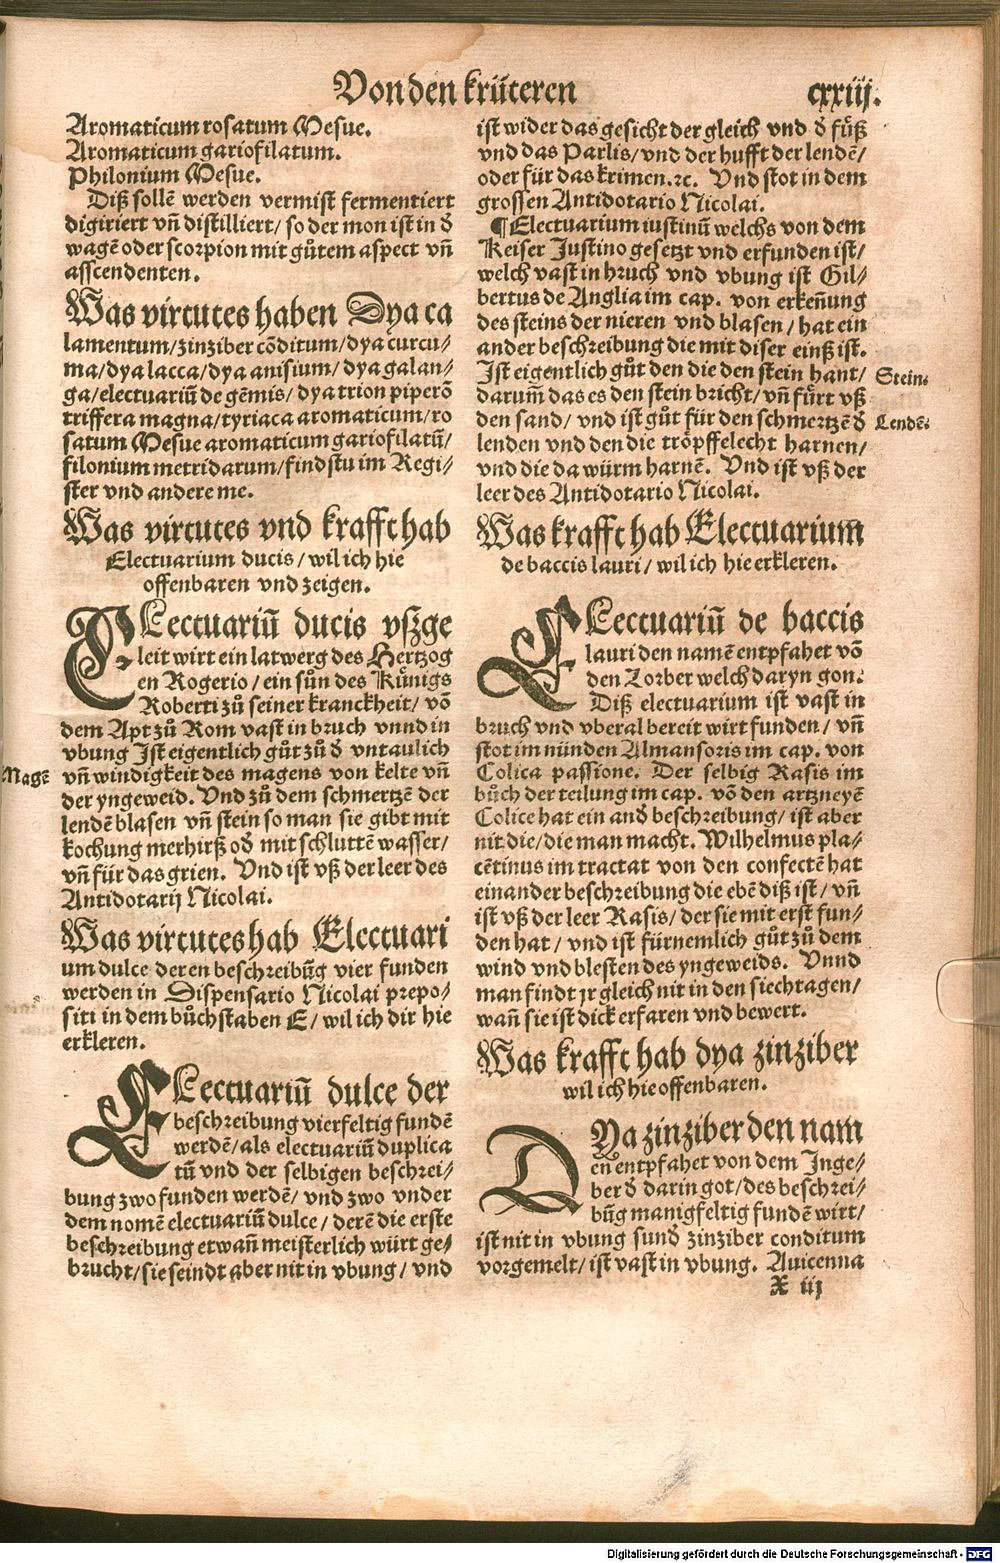 Von den krüteren
cxxiij.
Aromaticum rosatum Mesue.
Aromaticum gariofilatum.
Philonium Mesue.
Diß sollē werden vermist fermentiert
digiriert vñ distilliert/ so der mon ist in d̕
wagē oder scorpion mit gůtem aspect vñ
asscendenten.
Was virtutes haben Dya ca
lamentum/ zinziber cōditum/ dya curcu⸗
ma/ dya lacca/ dya anisium/ dya galan⸗
ga/ electuariū de gēmis/ dya trion piperō
triffera magna/ tyriaca aromaticum/ ro
satum Mesue aromaticum gariofilatū/
filonium metridarum/ findstu im Regi⸗
ster vnd andere me.
Was virtutes vnd krafft hab
Electuarium ducis/ wil ich hie
offenbaren vnd zeigen.
ELectuariū ducis vßge
leit wirt ein latwerg des Hertzog
en Rogerio/ ein sůn des Künigs
Roberti zů seiner kranckheit/ vō
dem Apt zů Rom vast in bruch vnnd in
vbung Ist eigentlich gůt zů d̕ vntaulich
Magē
vñ windigkeit des magens von kelte vñ
der yngeweid. Vnd zů dem schmertzē der
lendē blasen vñ stein so man sie gibt mit
kochung merhirß od̕ mit schluttē wasser/
vñ für das grien. Vnd ist vß der leer des
Antidotarij Nicolai.
Was virtutes hab Electuari
um dulce deren beschreibūg vier funden
werden in Dispensario Nicolai prepo⸗
siti in dem bůchstaben E/ wil ich dir hie
erkleren.
ELectuariū dulce der
beschreibung vierfeltig fundē
werdē/ als electuariū duplica
tū vnd der selbigen beschrei⸗
bung zwo funden werdē/ vnd zwo vnder
dem nomē electuariū dulce/ derē die erste
beschreibung etwañ meisterlich würt ge⸗
brucht/ sie seindt aber nit in vbung/ vnd
ist wider das gesicht der gleich vnd d̕ füß
vnd das Parlis/ vnd der hufft der lendē/
oder für das krimen.ꝛc. Vnd stot in dem
grossen Antidotario Nicolai.
¶Electuarium iustinū welchs von dem
Keiser Justino gesetzt vnd erfunden ist/
welch vast in bruch vnd vbung ist Gil⸗
bertus de Anglia im cap. von erkeñung
des steins der nieren vnd blasen/ hat ein
ander beschreibung die mit diser einß ist.
Ist eigentlich gůt den die den stein hant/
Stein.
darum̄ das es den stein bricht/ vñ fürt vß
den sand/ vnd ist gůt für den schmertzē d̕
Lendē.
lenden vnd den die tröpffelecht harnen/
vnd die da würm harnē. Vnd ist vß der
leer des Antidotario Nicolai.
Was krafft hab Electuarium
de baccis lauri/ wil ich hie erkleren.
ELectuariū de baccis
lauri den namē entpfahet vō
den Lorber welch daryn gon.
Diß electuarium ist vast in
bruch vnd vberal bereit wirt funden/ vñ
stot im nünden Almansoris im cap. von
Colica passione. Der selbig Rasis im
bůch der teilung im cap. vō den artzneyē
Colice hat ein and̕ beschreibung/ ist aber
nit die/ die man macht. Wilhelmus pla⸗
cētinus im tractat von den confectē hat
ein ander beschreibung die ebē diß ist/ vñ
ist vß der leer Rasis/ der sie mit erst fun⸗
den hat/ vnd ist fürnemlich gůt zů dem
wind vnd blesten des yngeweids. Vnnd
man findt jr gleich nit in den siechtagen/
wañ sie ist dick erfaren vnd bewert.
Was krafft hab dya zinziber
wil ich hie offenbaren.
DYa zinziber den nam
en entpfahet von dem Inge⸗
ber d̕ darin got/ des beschrei⸗
būg manigfeltig fundē wirt/
ist nit in vbung sund̕ zinziber conditum
vorgemelt/ ist vast in vbung. Auicenna
X iij
Digitalisierung gefördert durch die Deutsche Forschungsgemeinschaft - DFG